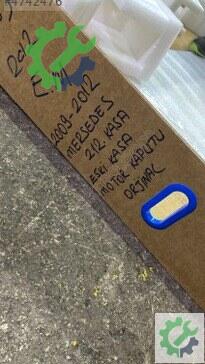 #4742476
2012
2009-2012
MERSEDES
212. KASA
ESKİ KASA
MOTOR KAPUTU
ORJİNAL